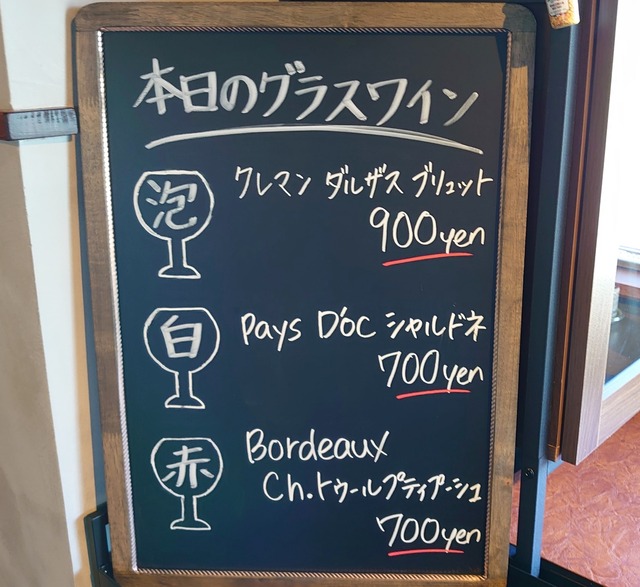 本日のグラスワイン
泡
クレマン ダルザス ブリュット
900yen
白
Pays D'oc シャルドネ
700yen
赤
Bordeaux
Ch.トゥールプティプーシュ
700yen